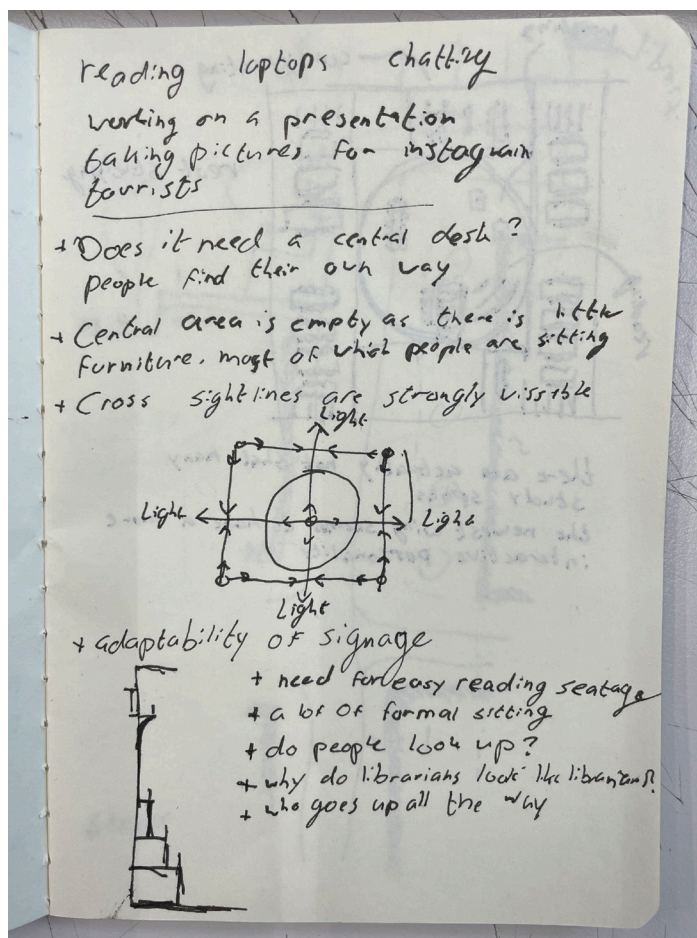 reading laptops chatting
working on a presentation
taking pictures for instagram
tourists
+ Does it need a central desk?
people find their own way
+ Central area is empty as there is little
furniture, most of which people are sitting
+ Cross sightlines are strongly vissible
Light
Light
Light
Light
+ adaptability of signage
+ need for easy reading seatage
+ a lot of formal sitting
+ do people look up?
+ why do librarians look like librarians?
+ who goes up all the way